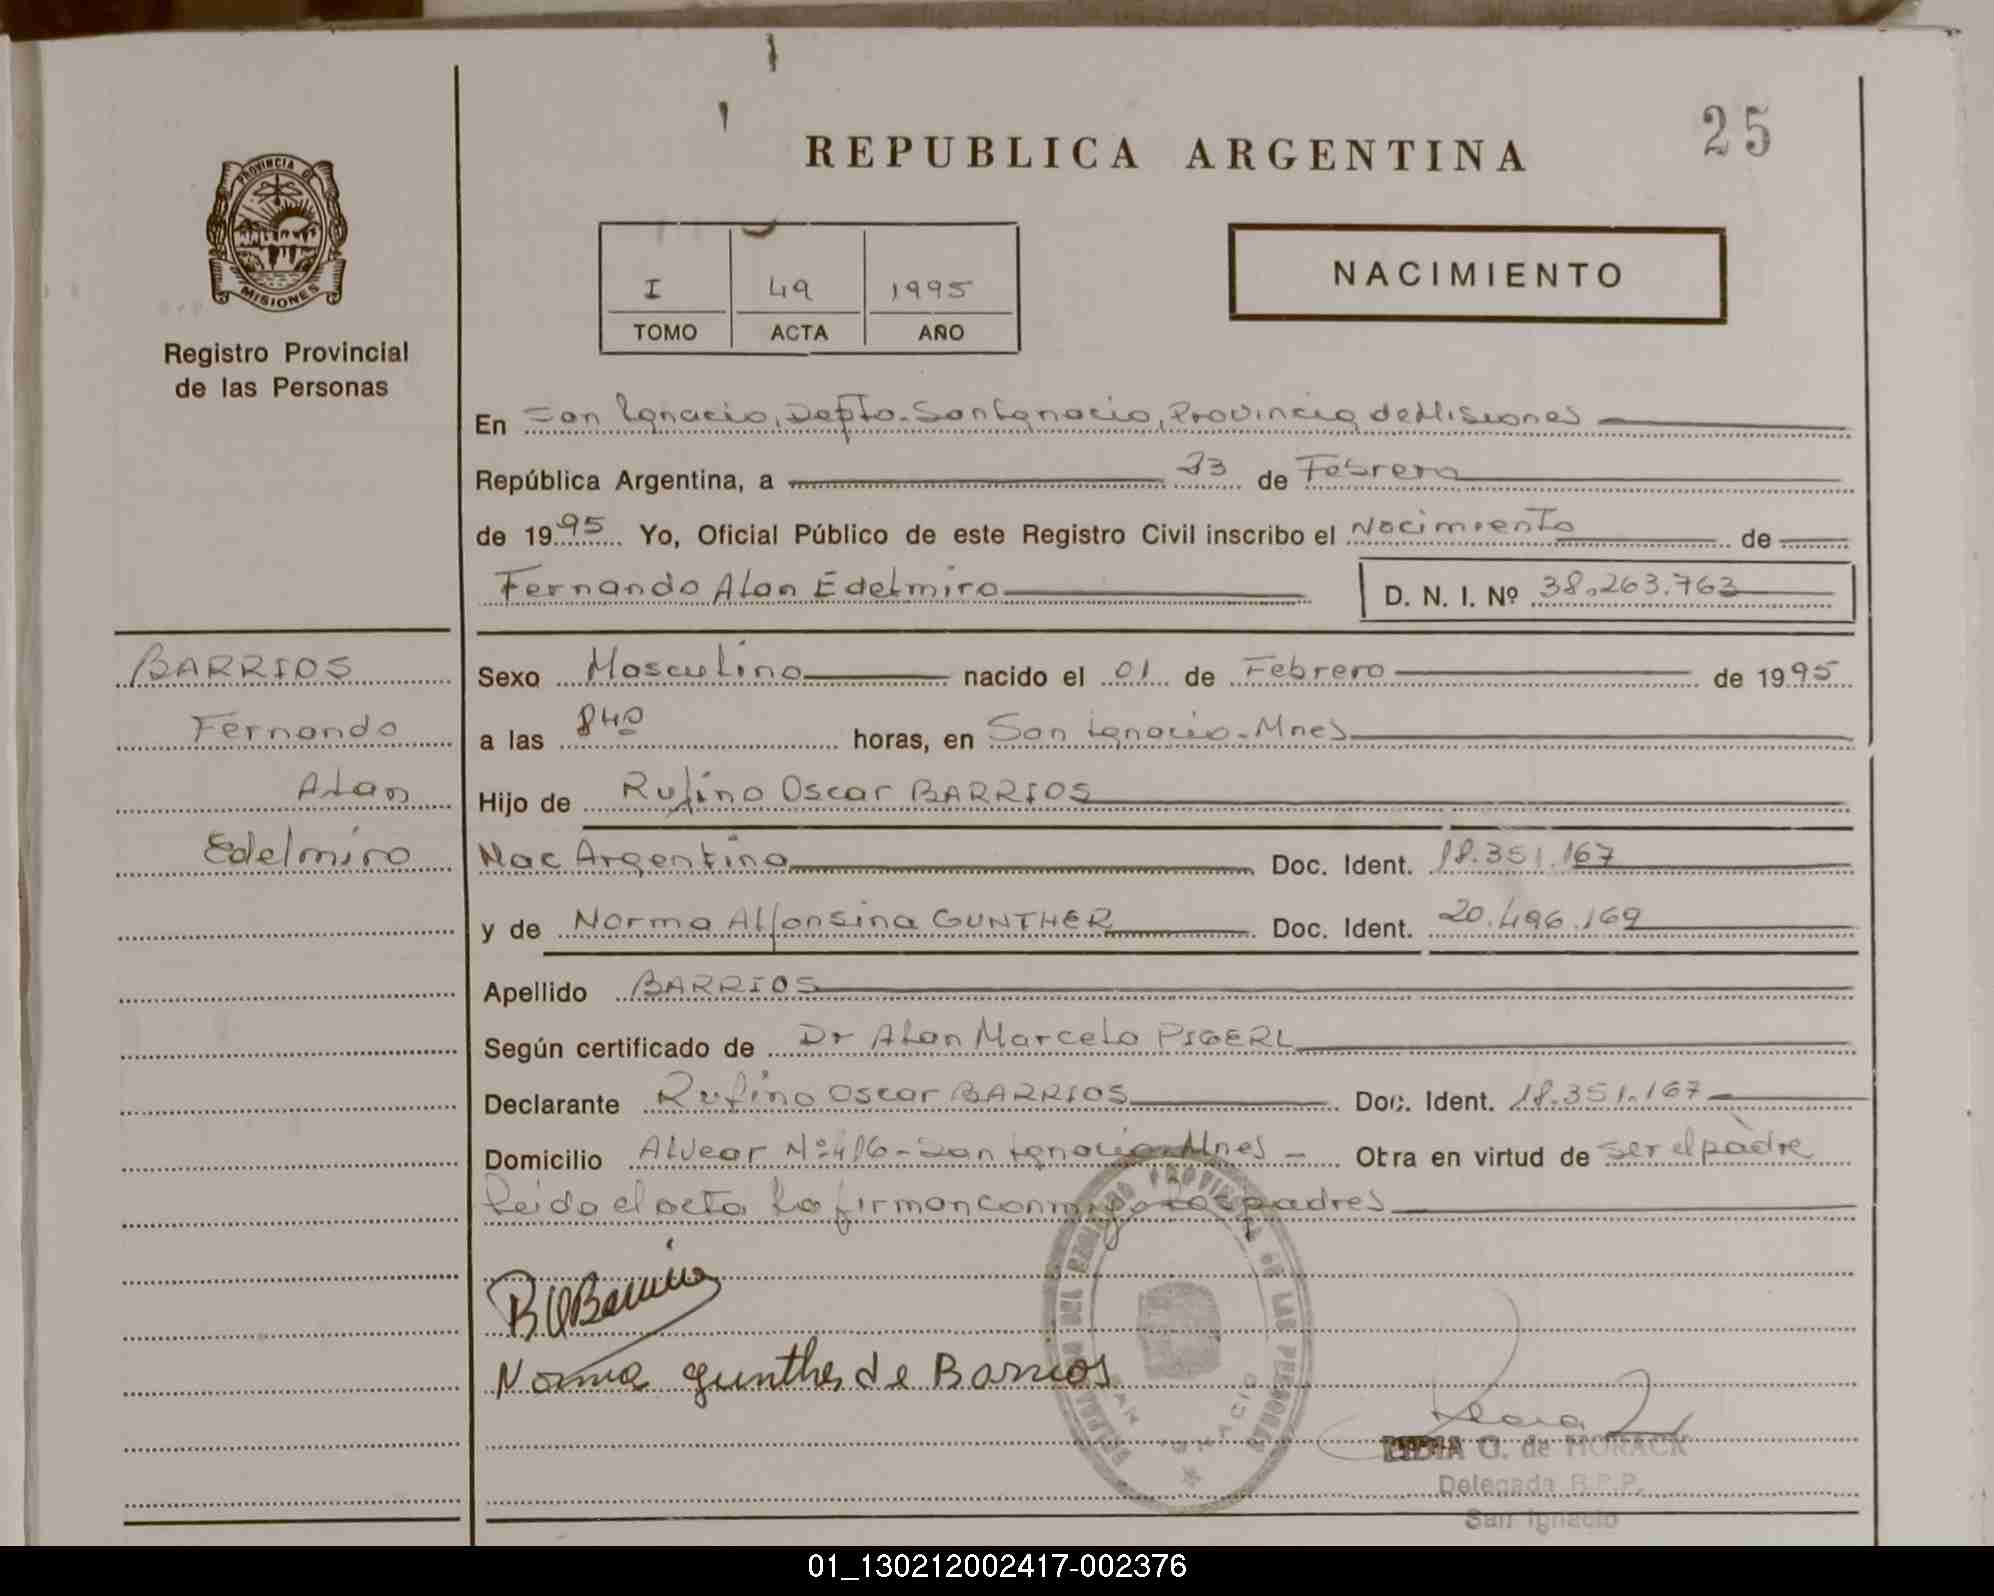 25
REPUBLICA ARGENTINA
PROVINCIA DE
MISIONES
Registro Provincial
de las Personas
I 49 1995
TOMO ACTA AÑO
NACIMIENTO
En San Ignacio, Depto. San Ignacio, Provincia de Misiones
República Argentina, a 23 de Febrero
de 1995 Yo, Oficial Público de este Registro Civil inscribo el Nacimiento de
Fernando Alan Edelmiro D. N. I. Nº 38.263.763
BARRIOS
Fernando
Alan
Edelmiro
Sexo Masculino nacido el 01 de Febrero de 1995
a las 840 horas, en San Ignacio - Mnes
Hijo de Rufino Oscar BARRIOS
Nac Argentina Doc. Ident. 18.351.167
y de Norma Alfonsina GUNTHER Doc. Ident. 20.496.169
Apellido BARRIOS
Según certificado de Dr Alan Marcelo PIGERL
Declarante Rufino Oscar BARRIOS Doc. Ident. 18.351.167
Domicilio Alvear Nº 416 - San Ignacio - Mnes - Obra en virtud de ser el padre
Leida el acta la firman conmigo los padres
Norma Gunther de Barrios
PROVINCIAL DE LAS PERSONAS
SAN IGNACIO
LIDIA O. de HORACK
Delegada R.P.P.
San Ignacio
01_130212002417-002376